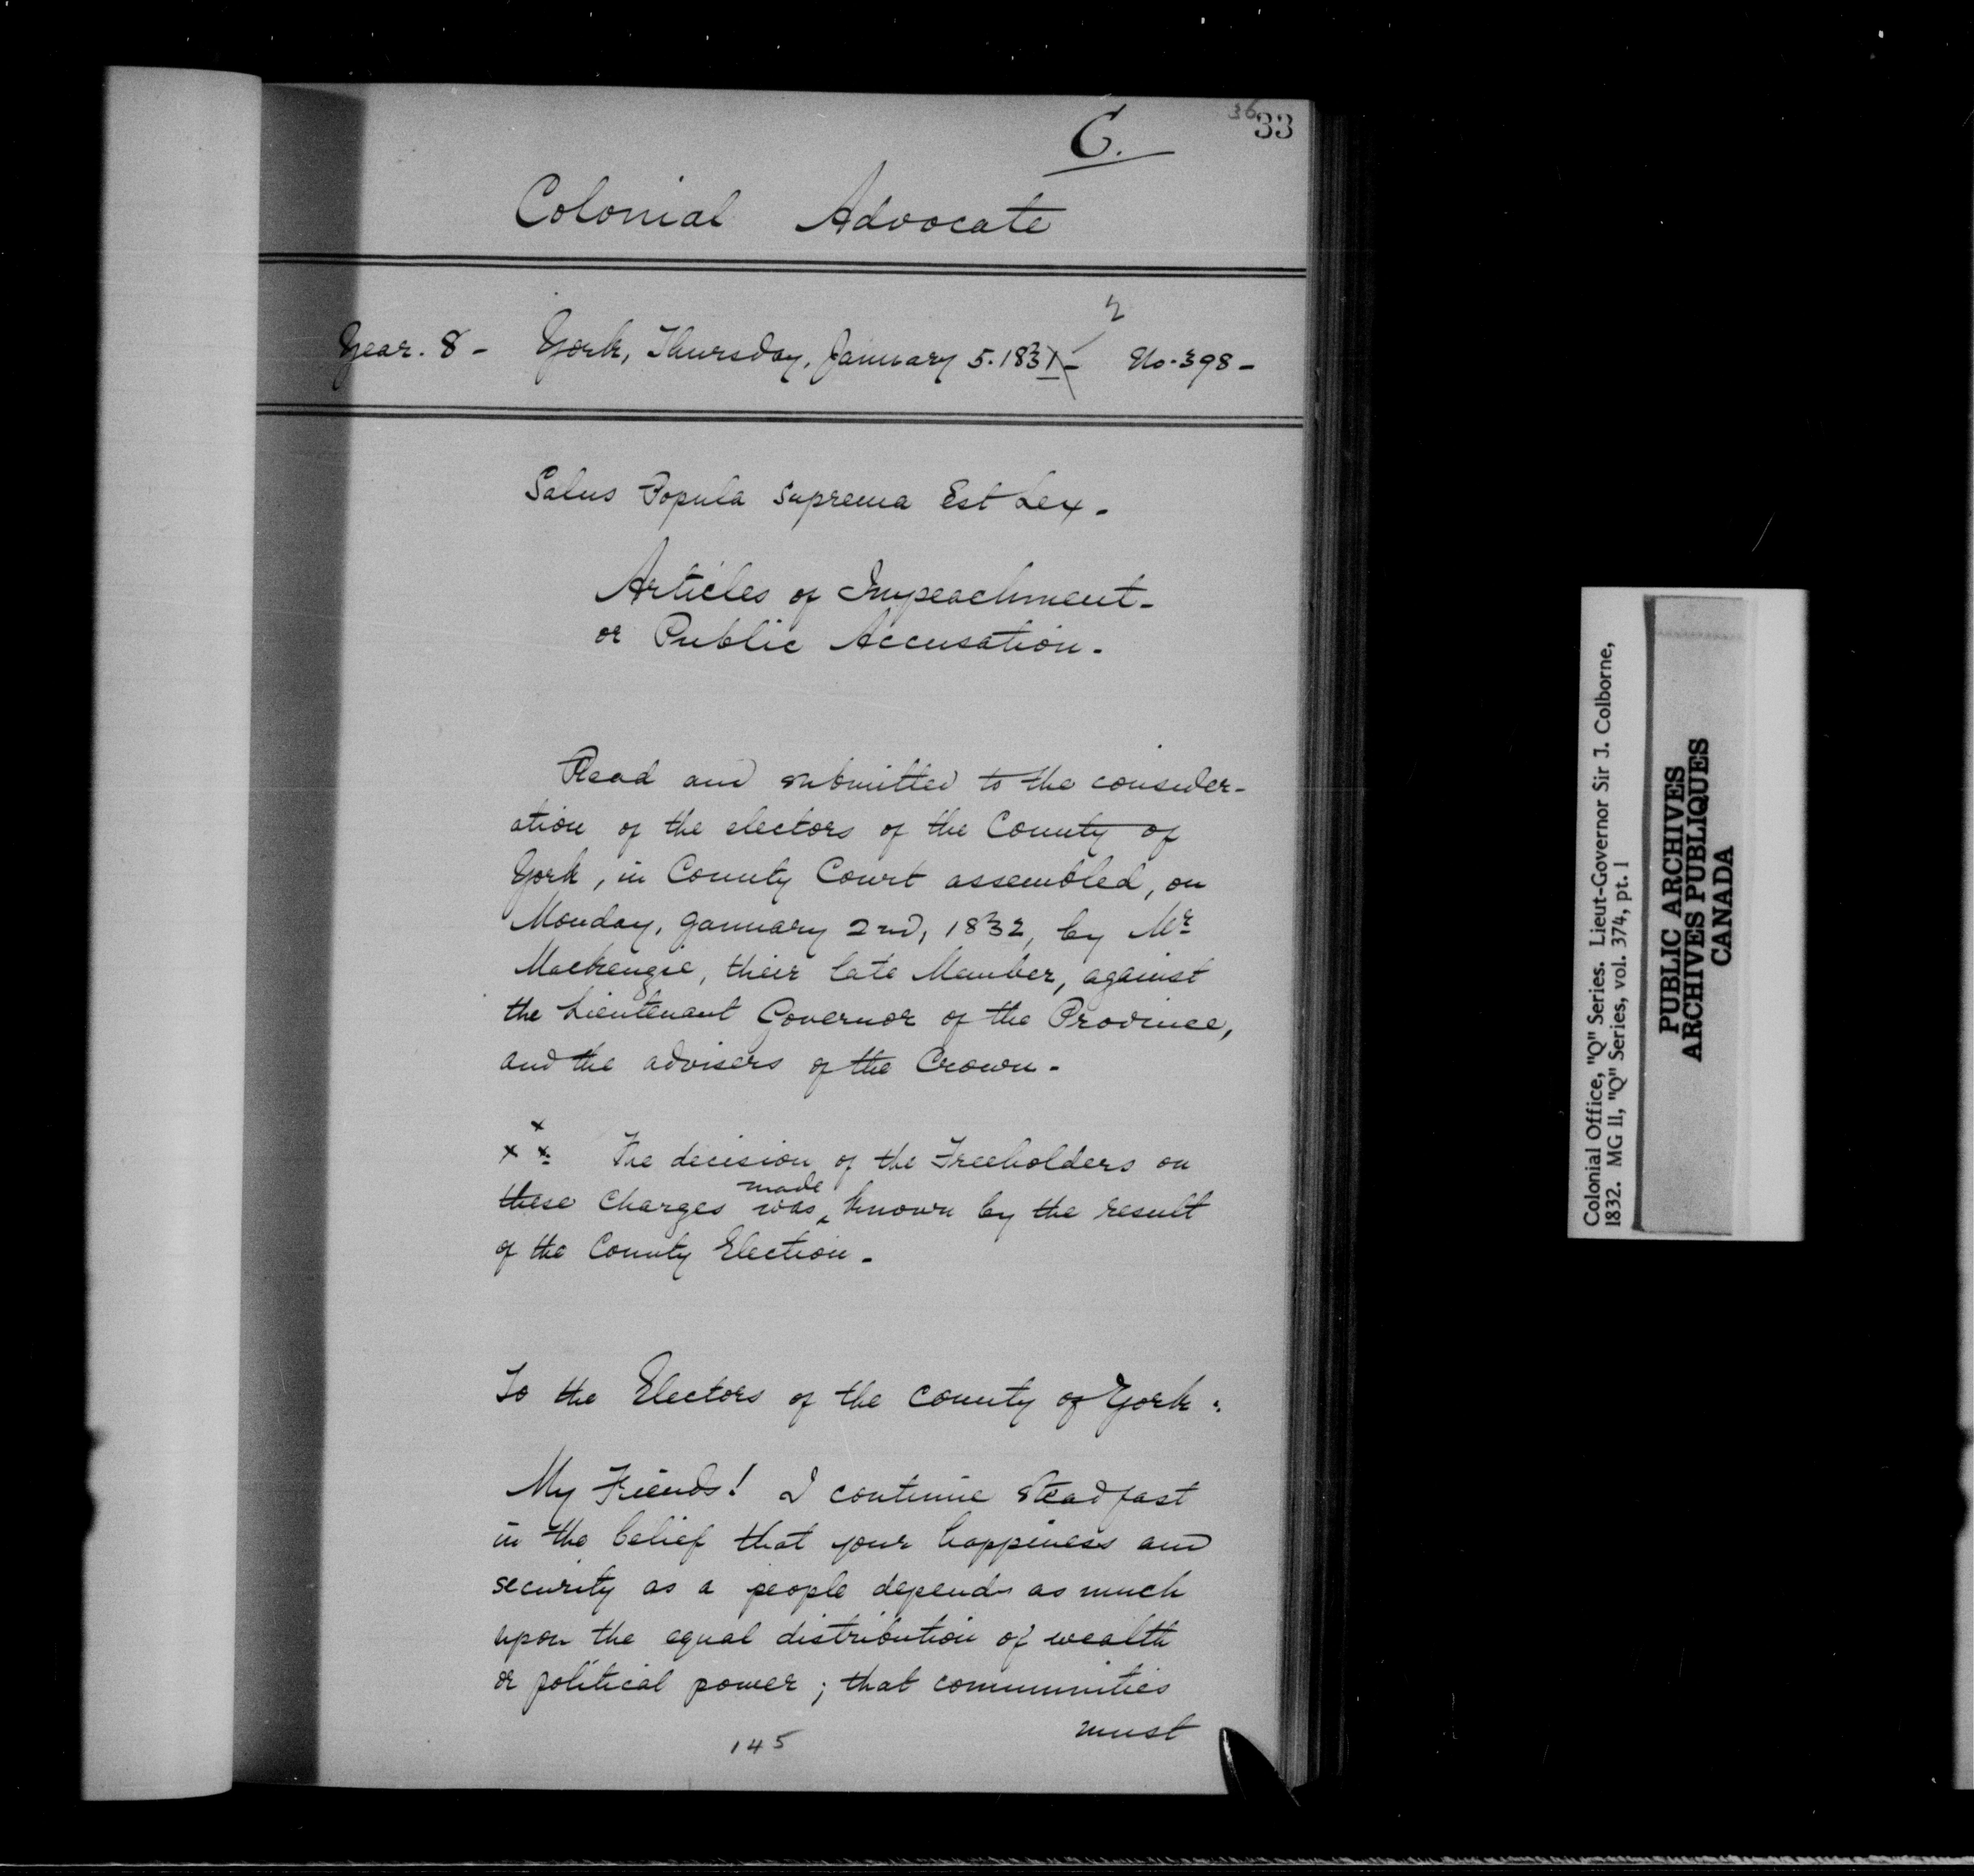 36
33
C.
Colonial Advocate
Year. 8 - York, Thursday, January 5. 1831 - 2 No. 398 -
Salus Popula Suprema Est Lex.
Articles of Impeachment -
or Public Accusation.
Read and submitted to the consider-
ation of the electors of the County of
York, in County Court assembled, on
Monday, January 2nd, 1832, by Mr
Mackenzie, their late Member, against
the Lieutenant Governor of the Province,
and the advisers of the Crown.
x x x The decision of the Freeholders on
these Charges was made known by the result
of the County Election.
To the Electors of the County of York.
My Friends! I continue steadfast
in the belief that your happiness and
security as a people depends as much
upon the equal distribution of wealth
or political power; that communities
must
145
Colonial Office, "Q" Series. Lieut-Governor Sir J. Colborne,
1832. MG 11, "Q" Series, vol. 374, pt. 1
PUBLIC ARCHIVES
ARCHIVES PUBLIQUES
CANADA